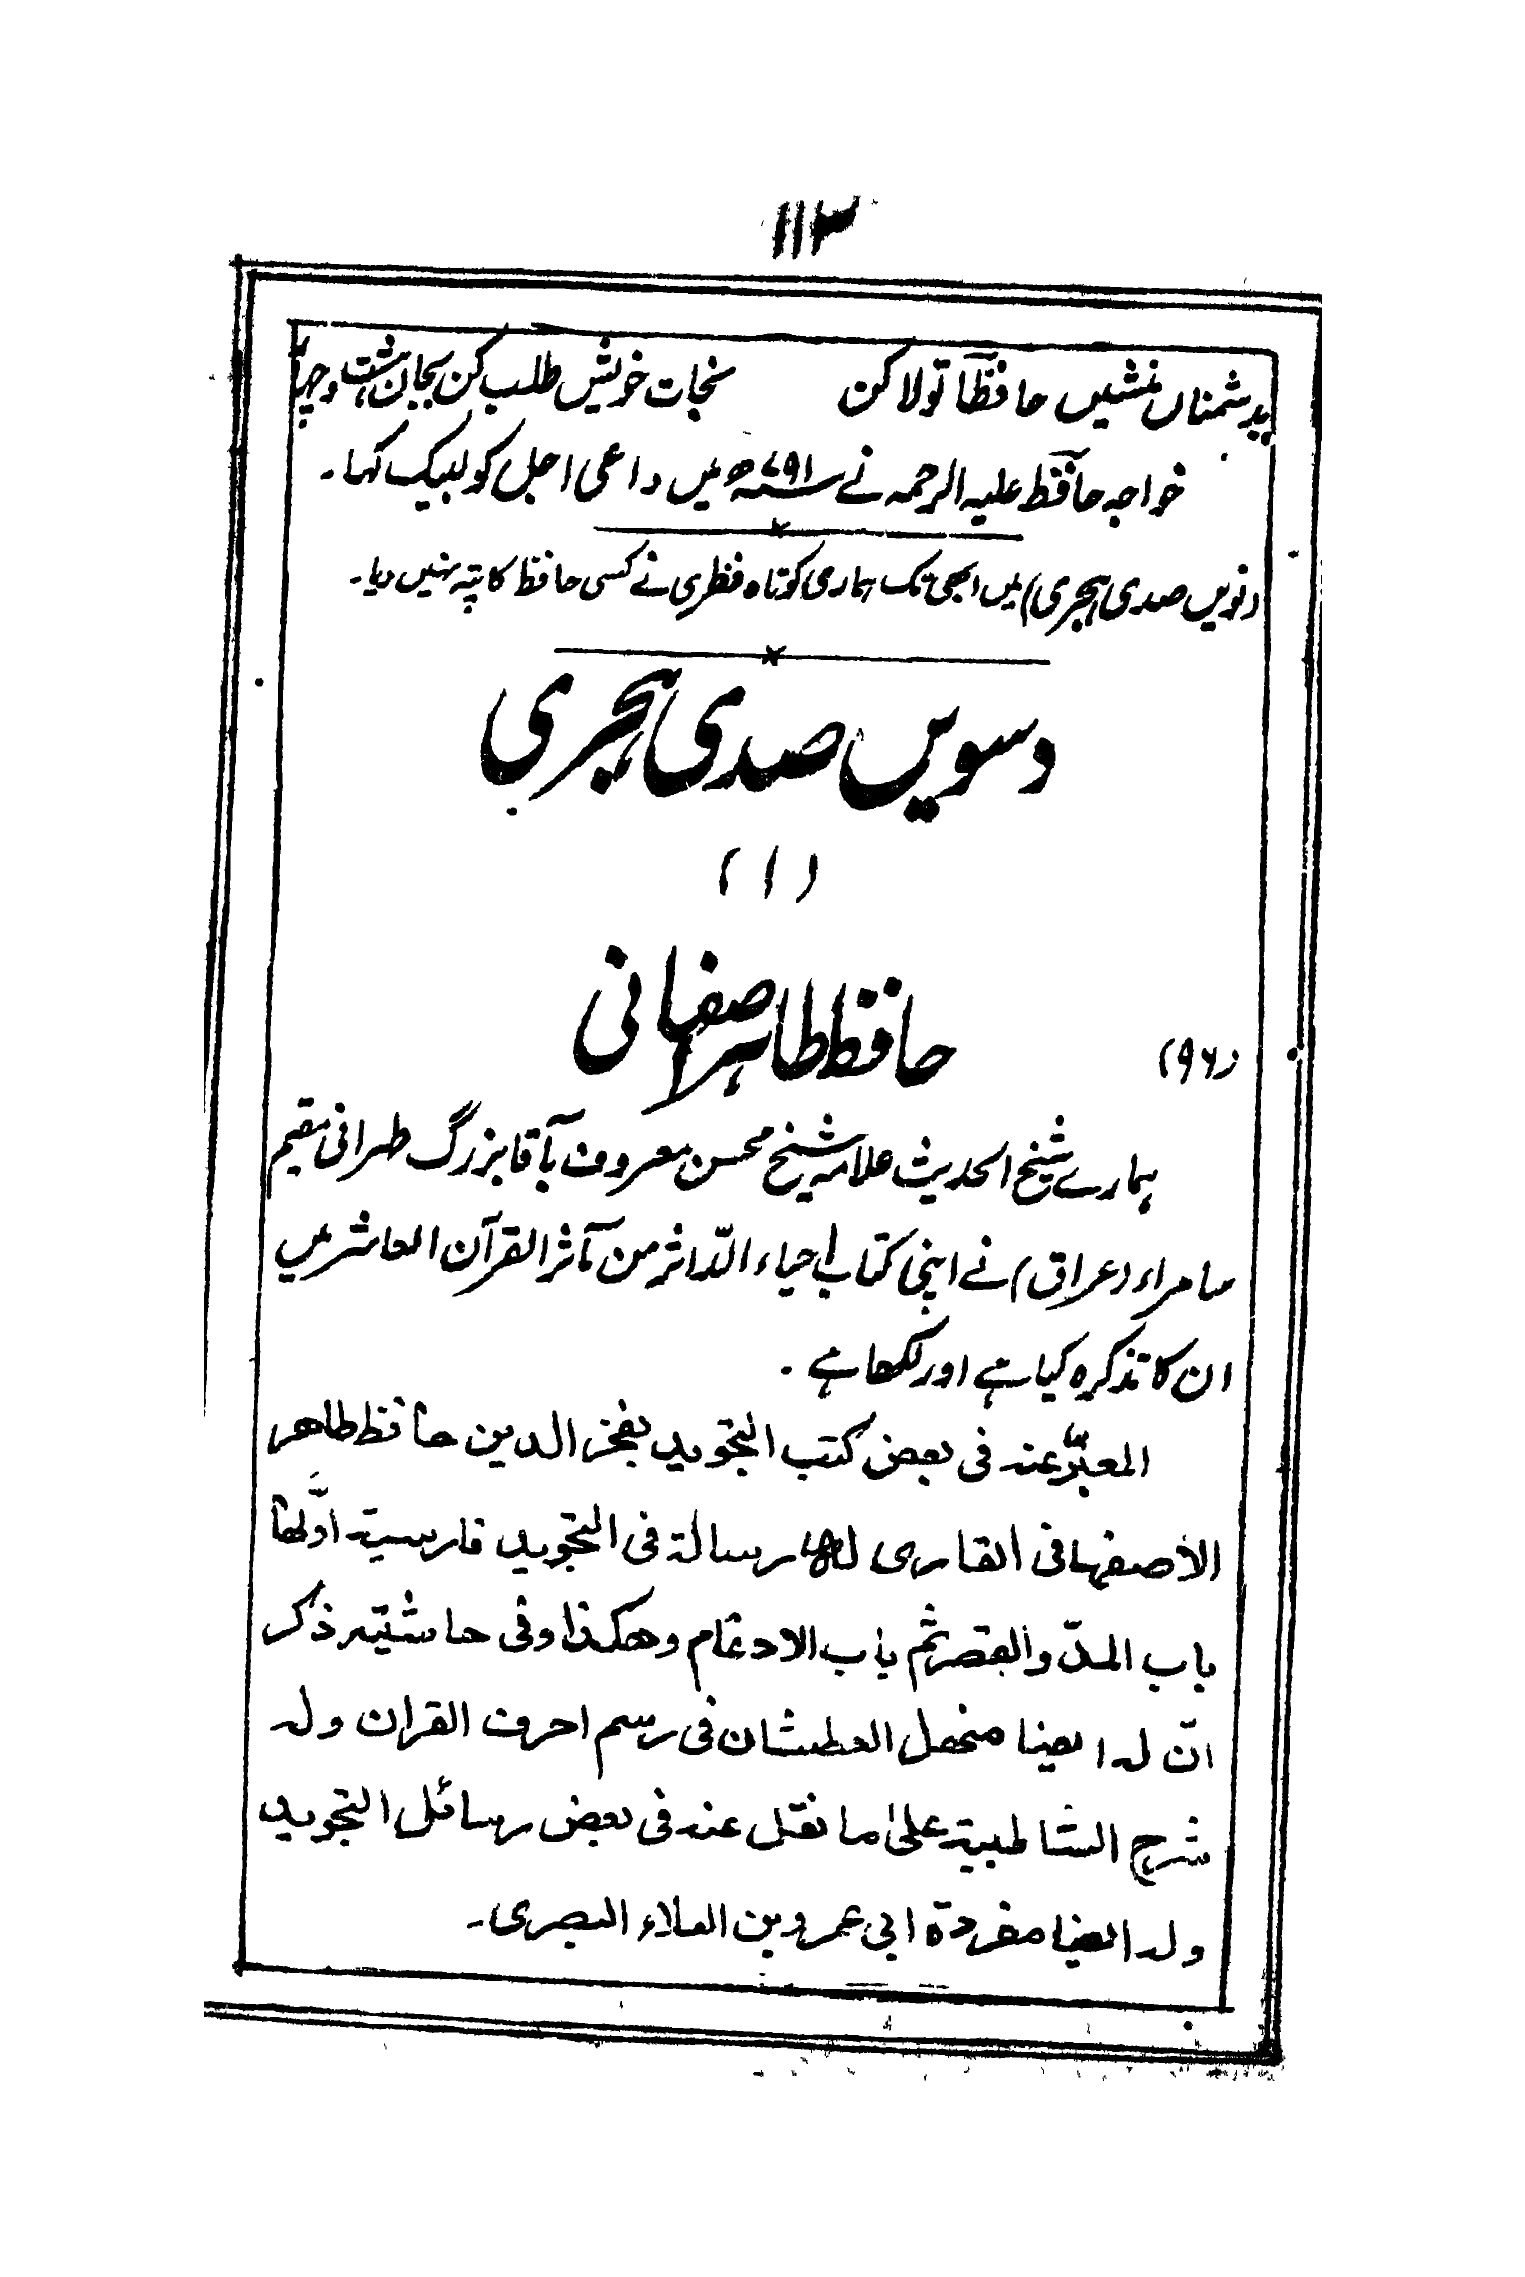 ۱۱۳
بدشمناں منشیں حافظا تولا کن نجات خویش طلب کن بجان ہشت وچہار
خواجہ حافظ علیہ الرحمہ نے ۷۹۱ھ میں داعی اجل کو لبیک کہا۔
(نویں صدی ہجری) میں ابھی تک ہماری کوتاہ نظری نے کسی حافظ کا پتہ نہیں دیا۔
دسویں صدی ہجری
(۱)
حافظ طاہر اصفہانی
(۹۶)
ہمارے شیخ الحدیث علامہ شیخ محسن معروف بآقا بزرگ طہرانی مقیم
سامراء (عراق) نے اپنی کتاب احیاء الدّاثر من مآثر القرآن العاشر میں
ان کا تذکرہ کیا ہے اور لکھا ہے۔
المعبّر عنہ فی بعض کتب التجوید بفخر الدین حافظ طاھر
الاصفہانی القاری لہ رسالۃ فی التجوید فارسیۃ اوّلھا
باب المدّ والقصر ثم باب الادغام وھکذا وفی حاشیتہ ذکر
انّ لہ ایضا منھل العطشان فی رسم احرف القران ولہ
شرح الشاطبیۃ علیٰ ما نقل عنہ فی بعض رسائل التجوید
ولہ ایضا مفردۃ ابی عمرو بن العلاء البصری۔